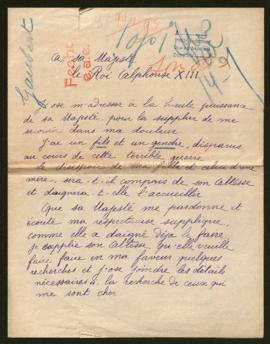 Gaubert
A Sa Majesté
le Roi Alphonse XIII
J'ose m'adresser à la haute puissance
de sa Majesté pour la supplier de me
secourir dans ma douleur
J'ai un fils et un gendre, disparus
au cours de cette terrible guerre.
Le désespoir de ma fille et celui d'une
mère, sera-t-il compris de son Altesse
et daignera-t-elle l'accueillir.
Que sa Majesté me pardonne et
écoute ma respectueuse supplique,
comme elle a daigné déjà le faire,
je supplie son Altesse, qu'elle veuille
faire faire en ma faveur quelques
recherches et j'ose joindre les détails
nécessaires à la recherche de ceux qui
me sont cher